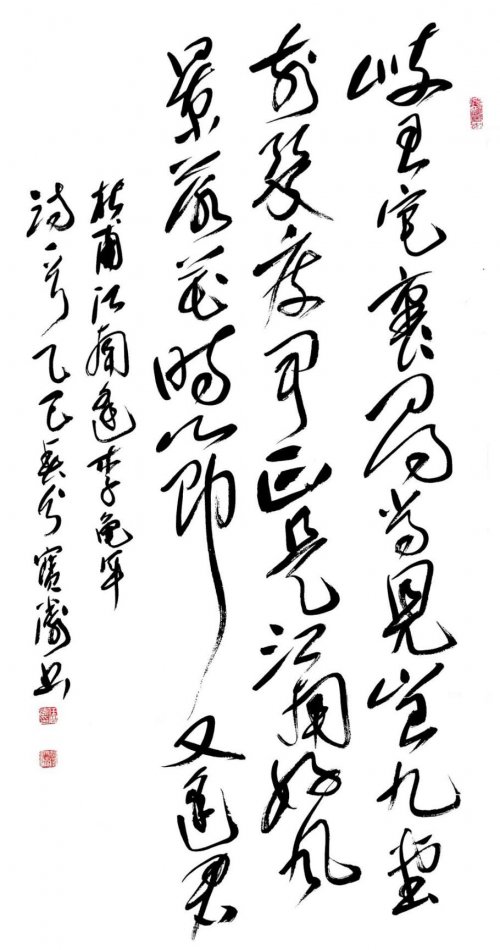 岐王宅裏尋常見崔九堂
前幾度聞正是江南好風
景落花時節又逢君
杜甫江南逢李龜年
詩一首乙巳春分寶書